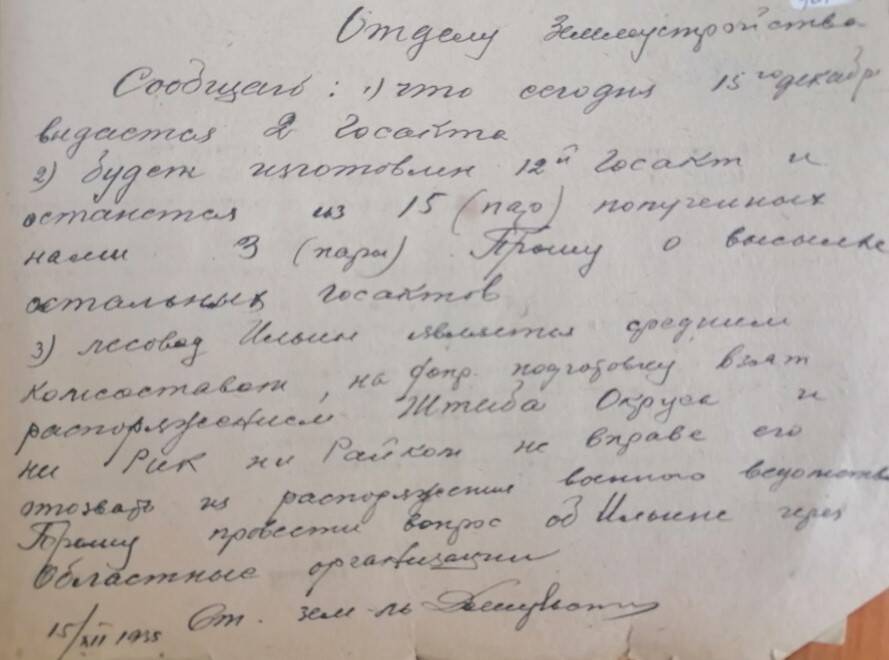 Отделу Землеустройства
Сообщаю: 1) что сегодня 15го декабр
выдается 2 Госакта
2) будет изготовлен 12й Госакт и
останется из 15 (пар) полученных
нами 3 (пары) Прошу о высылке
остальных госактов
3) лесовод Ильин является средним
комсоставом, на подготовку взят
распоряжением Штаба Округа и
ни Рик ни Райком не вправе его
отозвать из распоряжения военного ведомства
Прошу провести вопрос об Ильине через
Областные организации
15/XII 1935 Ст. зем-ль